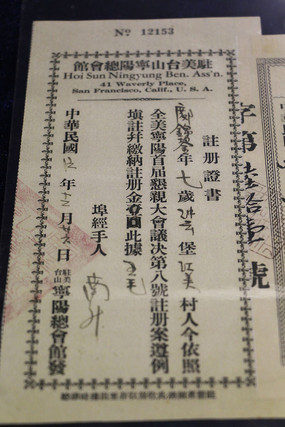 No 12153
駐美台山寧陽總會館
Hoi Sun Ningyung Ben. Ass'n.
41 Waverly Place,
San Francisco, Calif., U. S. A.
註册證書
年 七 歲 堡 村人今依照
全美寧陽首屆懇親大會議决第八號註册案遵例
填註拜繳納註册金 圓此據
埠經手人
中華民國 年 十二 月 日
駐美台山寧陽總會館發
字第 號